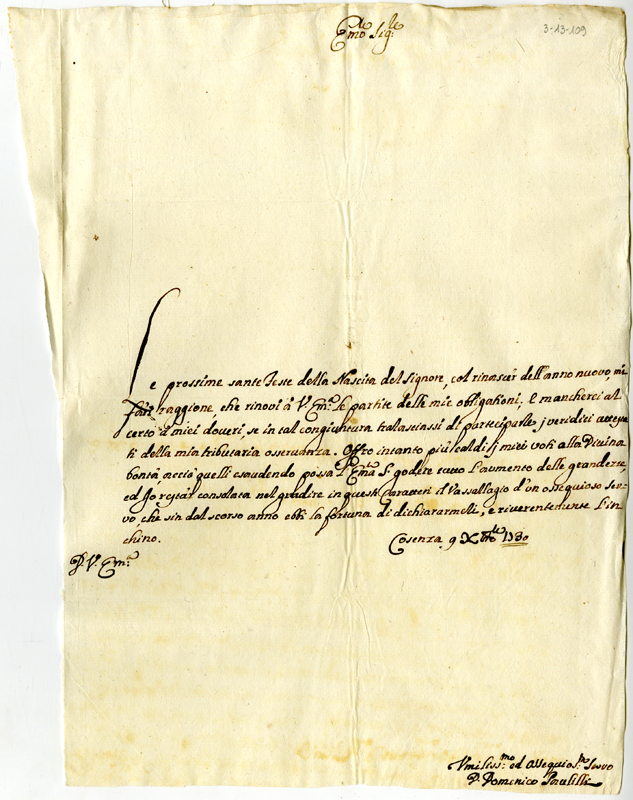 3-13-109
Em̃o Sig:re
Le prossime sante Feste della Nascita del Signore, col rinascer dell'anno nuovo, mi
fan raggione, che rinovi à V. Em:a le partite delle mie obligationi. E mancherei al
certo à miei doveri, se in tal congiuntura tralasciassi di parteciparle j veridici attesta
ti della mia tributaria osservanza. Offro intanto più caldi j miei voti alla Divina
bontà, acciò quelli esaudendo possa l'Em:a S. godere tutto l'aumento delle grandezze,
ed Io restar consolato nel gradire in questi caratteri il Vassallagio d'un ossequioso ser-
vo, che sin dal scorso anno ebbi la fortuna di dichiararmeli, e riverentemente l'in
chino.
Cosenza 9 Xbre 1730
D. V. Em:a
Vmiliss:mo ed Ossequios:mo Servo
D. Domenico